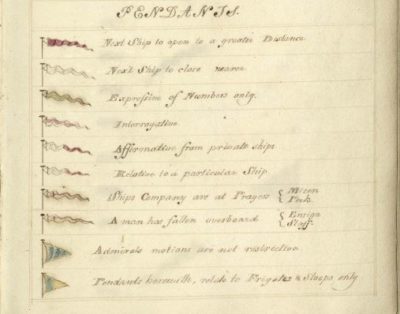 PENDANTS.
Next Ship to open to a greater Distance
Next Ship to close nearer
Expressive of Numbers only.
Interrogative
Affirmative from private ships
Relative to a particular Ship
Ships Company are at Prayers { Mizen Peek
A man has fallen overboard { Ensign Staff
Admirals motions are not restrictive
Pendants herewith, relate to Frigates & Sloops only